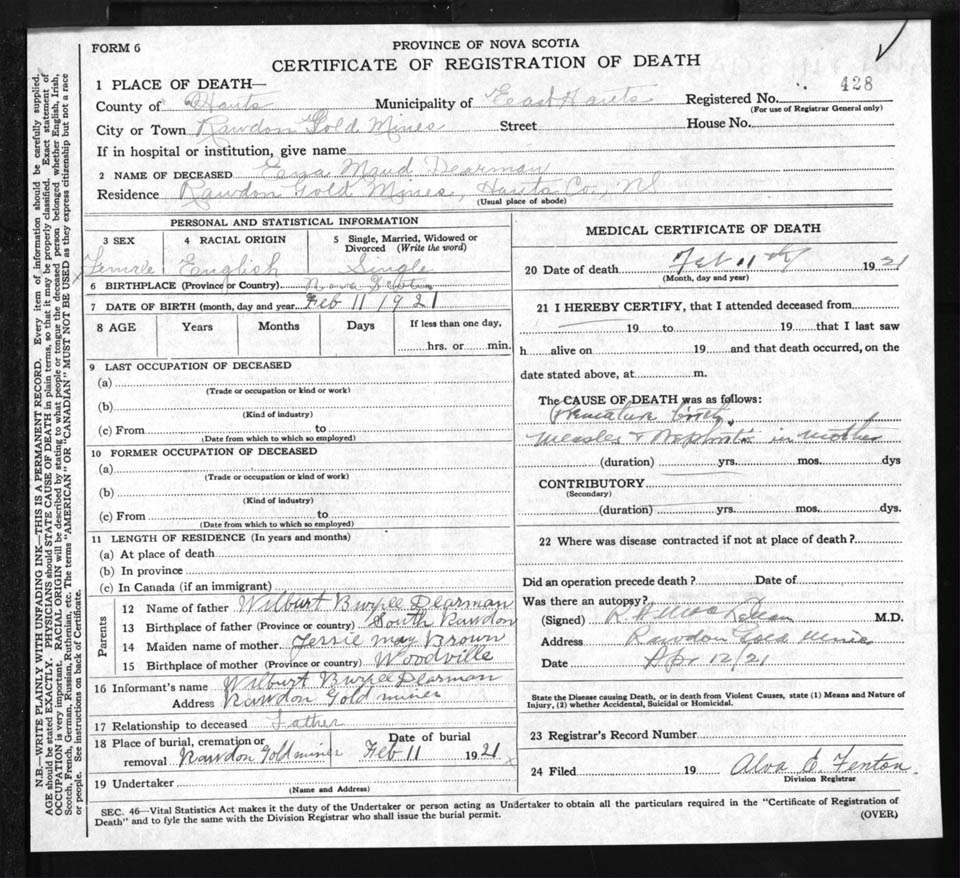 FORM 6
PROVINCE OF NOVA SCOTIA
CERTIFICATE OF REGISTRATION OF DEATH
428
1 PLACE OF DEATH—
County of Hants Municipality of East Hants Registered No.
(For use of Registrar General only)
City or Town Rawdon Gold Mines Street House No.
If in hospital or institution, give name
2 NAME OF DECEASED Maud Dearman
Residence Rawdon Gold Mines, Hants Co., NS
(Usual place of abode)
PERSONAL AND STATISTICAL INFORMATION
3 SEX 4 RACIAL ORIGIN 5 Single, Married, Widowed or Divorced (Write the word)
Female English Single
6 BIRTHPLACE (Province or Country) Nova Scotia
7 DATE OF BIRTH (month, day and year) Feb 11 1921
8 AGE Years Months Days If less than one day,
hrs. or min.
9 LAST OCCUPATION OF DECEASED
(a)
(Trade or occupation or kind or work)
(b)
(Kind of industry)
(c) From to
(Date from which to which so employed)
10 FORMER OCCUPATION OF DECEASED
(a)
(Trade or occupation or kind of work)
(b)
(Kind of industry)
(c) From to
(Date from which to which so employed)
11 LENGTH OF RESIDENCE (In years and months)
(a) At place of death
(b) In province
(c) In Canada (if an immigrant)
Parents
12 Name of father Wilburt Burpee Dearman
13 Birthplace of father (Province or country) South Rawdon
14 Maiden name of mother Jessie May Brown
15 Birthplace of mother (Province or country) Woodville
16 Informant's name Wilburt Burpee Dearman
Address Rawdon Gold mines
17 Relationship to deceased Father
18 Place of burial, cremation or removal Rawdon Gold mines Date of burial Feb 11 1921
19 Undertaker
(Name and Address)
MEDICAL CERTIFICATE OF DEATH
20 Date of death Feb 11th 1921
(Month, day and year)
21 I HEREBY CERTIFY, that I attended deceased from
19 to 19 that I last saw
h alive on 19 and that death occurred, on the
date stated above, at m.
The CAUSE OF DEATH was as follows:
Premature birth,
Measles & Nephritis in mother
(duration) yrs. mos. dys
CONTRIBUTORY
(Secondary)
(duration) yrs. mos. dys.
22 Where was disease contracted if not at place of death?
Did an operation precede death? Date of
Was there an autopsy?
(Signed) M.D.
Address Rawdon Gold Mines
Date Apr 12/21
State the Disease causing Death, or in death from Violent Causes, state (1) Means and Nature of
Injury, (2) whether Accidental, Suicidal or Homicidal.
23 Registrar's Record Number
24 Filed 19 Alva E. Fenton
Division Registrar
SEC. 46—Vital Statistics Act makes it the duty of the Undertaker or person acting as Undertaker to obtain all the particulars required in the "Certificate of Registration of
Death" and to fyle the same with the Division Registrar who shall issue the burial permit.
(OVER)
N.B.—WRITE PLAINLY WITH UNFADING INK—THIS IS A PERMANENT RECORD. Every item of information should be carefully supplied.
AGE should be stated EXACTLY. PHYSICIANS should STATE CAUSE OF DEATH in plain terms, so that it may be properly classified. Exact statement of
OCCUPATION is very important. RACIAL ORIGIN will be described by stating to what people or tongue the deceased person belonged whether English, Irish,
Scotch, French, German, Russian, Ruthenian, etc. The terms "AMERICAN" OR "CANADIAN" MUST NOT BE USED as they express citizenship but not a race
or people. See instructions on back of Certificate.